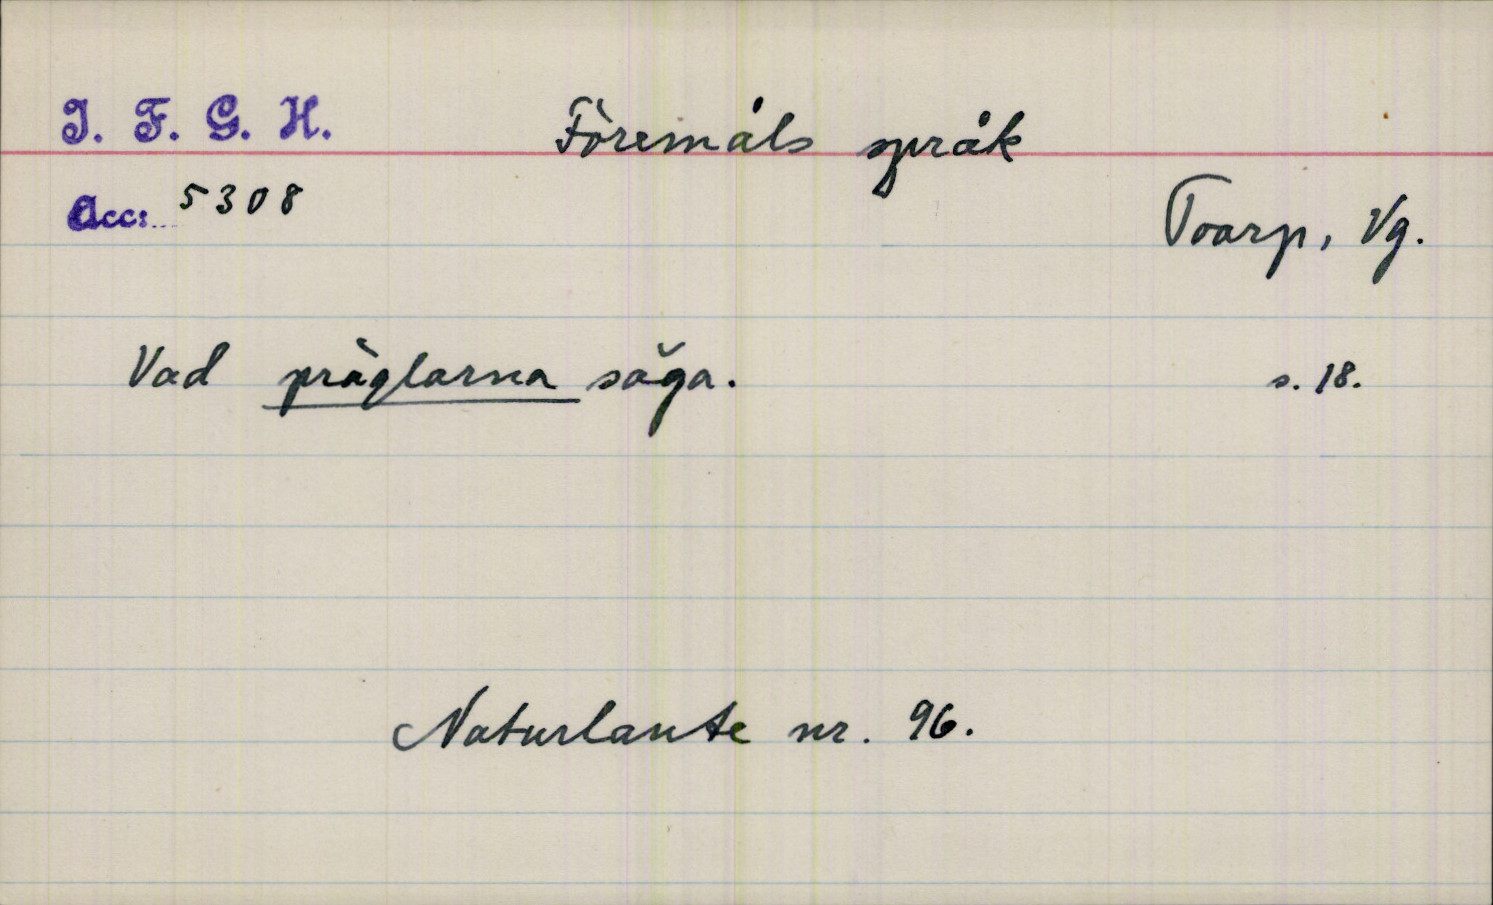 I. F. G. H.
Föremåls språk
Acc: 5308
Toarp, Vg.
Vad präglarna säga. s. 18.
Naturlante nr. 96.